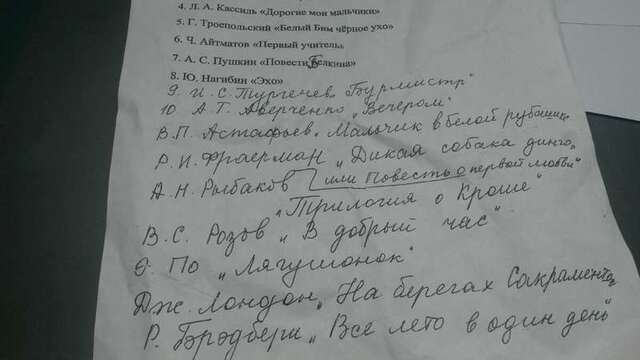 4. Л. А. Кассиль «Дорогие мои мальчики»
5. Г. Троепольский «Белый Бим чёрное ухо»
6. Ч. Айтматов «Первый учитель»
7. А. С. Пушкин «Повести Белкина»
8. Ю. Нагибин «Эхо»
9. И. С. Тургенев „Бурмистр"
10 А. Т. Аверченко „Вечером"
В. П. Астафьев „Мальчик в белой рубашке
Р. И. Фраерман „Дикая собака динго,
или Повесть о первой любви"
А. Н. Рыбаков
„Трилогия о Кроше"
В. С. Розов „В добрый час"
Э. По „Лягушонок"
Дж. Лондон „На берегах Сакраменто
Р. Брэдбери „Все лето в один день"